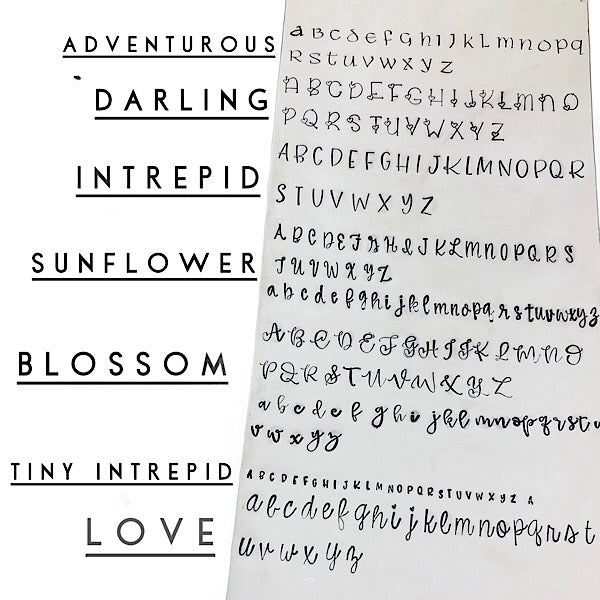 ADVENTUROUS
a B c d e f g h i j k L m n o p q
R s t u v w x y z
DARLING
A B C D E F G H I J K L M N O
P Q R S T U V W X Y Z
INTREPID
A B C D E F G H I J K L M N O P Q R
S T U V W X Y Z
SUNFLOWER
A B C D E F G H I J K L M N O P Q R S
T U V W X Y Z
a b c d e f g h i j k l m n o p q r s t u v w x y z
BLOSSOM
A B C D E F G H I J K L M N O
P Q R S T U V W X Y Z
a b c d e f g h i j k l m n o p q r s t u
v w x y z
TINY INTREPID
A B C D E F G H I J K L M N O P Q R S T U V W X Y Z A
LOVE
a b c d e f g h i j k l m n o p q r s t
u v w x y z